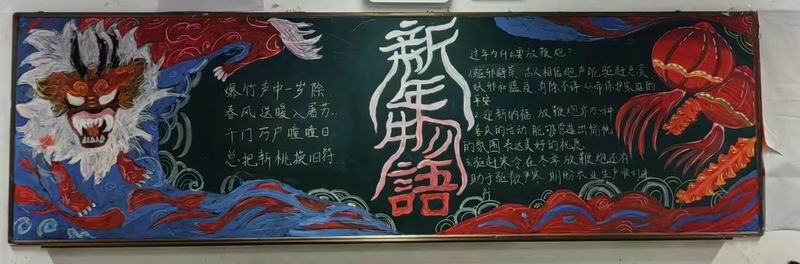 爆竹声中一岁除
春风送暖入屠苏.
千门万户曈曈日
总把新桃换旧符.
新年物語
过年为什么要放鞭炮?
1.驱邪避祟,古人相信炮声能驱赶恶灵
妖邪和瘟疫,消除不祥,从而保护家庭的
平安
2.迎新纳福,放鞭炮作为一种
喜庆的活动,能够营造出愉悦
的氛围,表达美好的祝愿
3.驱赶寒冷在冬季放鞭炮还有
助于驱散严寒,期盼农业生产顺利进
行